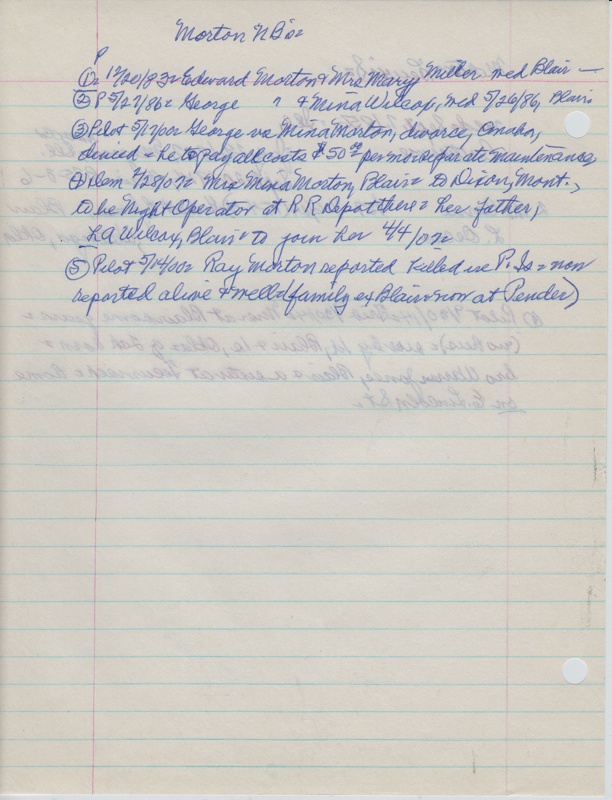 Morton NB's=
P
① = 12/20/83= Edward Morton & Mrs Mary Miller wed Blair —
② P 5/27/86= George " & Mina Wilcox, wed 5/26/86, Blair
③ Pilot 5/17/00= George vs Mina Morton, divorce, Omaha,
denied = he to pay all costs & $50 00 per mo separate maintenance
④ Dem 2/28/07= Mrs Mina Morton, Blair= to Dixon, Mont.,
to be Night Operator at R R Depot there= her father,
L A Wilcox, Blair= to join her 4/4/07=
⑤ Pilot 5/14/00= Ray Morton reported killed in P. Is= now
reported alive & well= (family ex Blair= now at Pender)